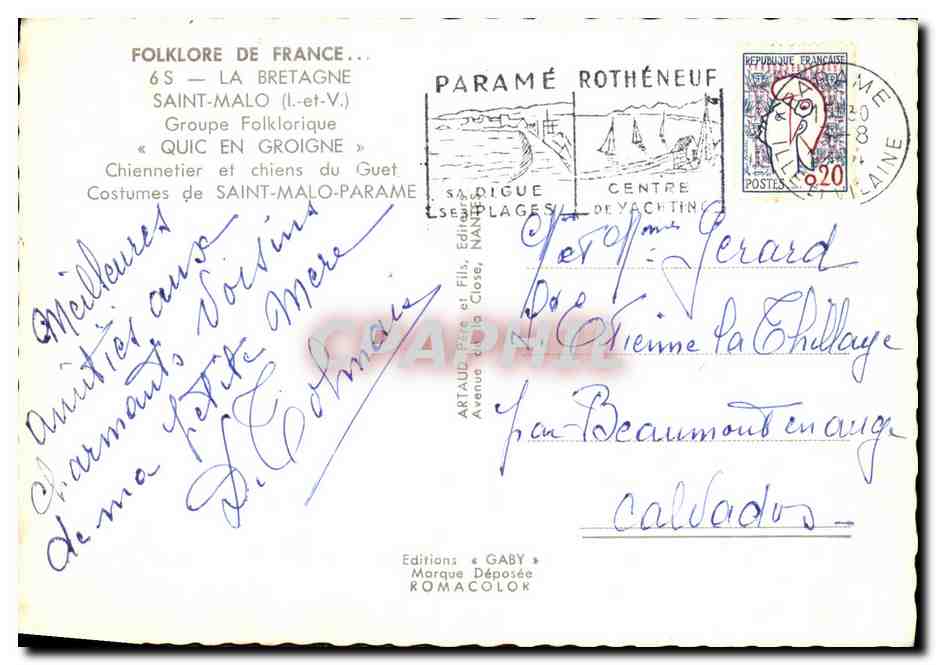 FOLKLORE DE FRANCE...
6 S — LA BRETAGNE
SAINT-MALO (I.-et-V.)
Groupe Folklorique
« QUIC EN GROIGNE »
Chiennetier et chiens du Guet
Costumes de SAINT-MALO-PARAME
Meilleures
amitiés aux
charmants voisins
de ma petite mère
PARAMÉ ROTHÉNEUF
SA DIGUE
SES PLAGES
CENTRE
DE YACHTING
REPUBLIQUE FRANÇAISE
POSTES 0,20
PARAME
ILLE
VILAINE
ARTAUD Père et Fils, Editeurs
Avenue de la Close, NANTES
Gerard
St Etienne la Thillaye
par Beaumont en auge
Calvados
CPAPHIL
Editions « GABY »
Marque Déposée
ROMACOLOR